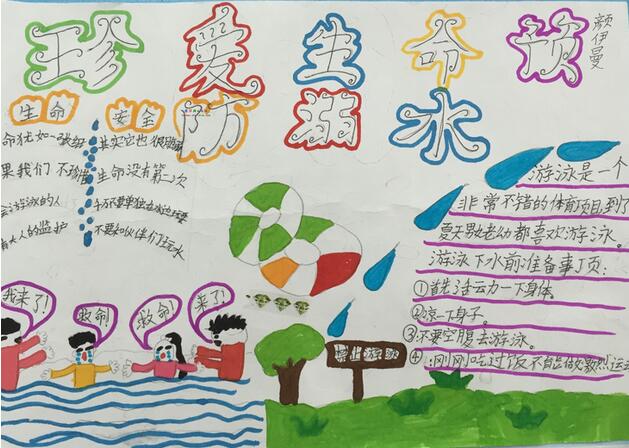 珍爱生命预
防溺水
颜伊曼
生命 安全
命犹如一张
果我们不珍惜
游泳的人
大人的监护
其实它也很
生命没有第二次
千万不要单独去
不要和伙伴们玩水
游泳是一个
非常不错的体育项目,到了
夏天男老幼都喜欢游泳。
游泳下水前准备事丁页:
①首先活云力一下身体
②凉一下身子。
③不要空腹去游泳。
④:刚刚吃过饭不能做剧烈运
我来了!
救命!
救命!
来了!
禁止游泳